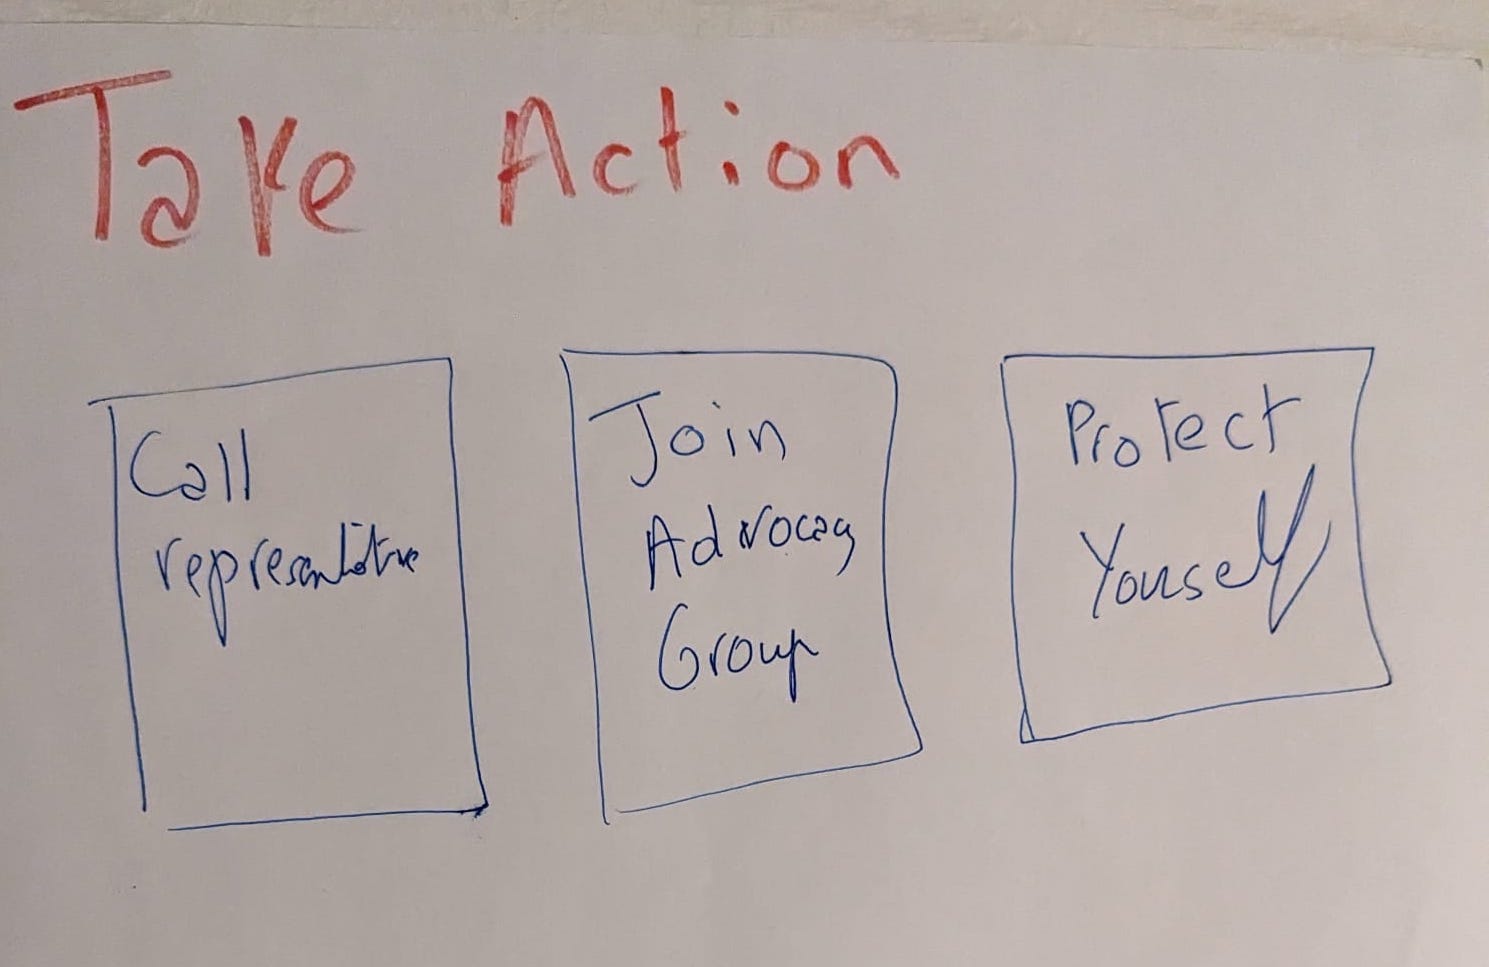 Take Action
Call
representative
Join
Advocacy
Group
Protect
Yourself